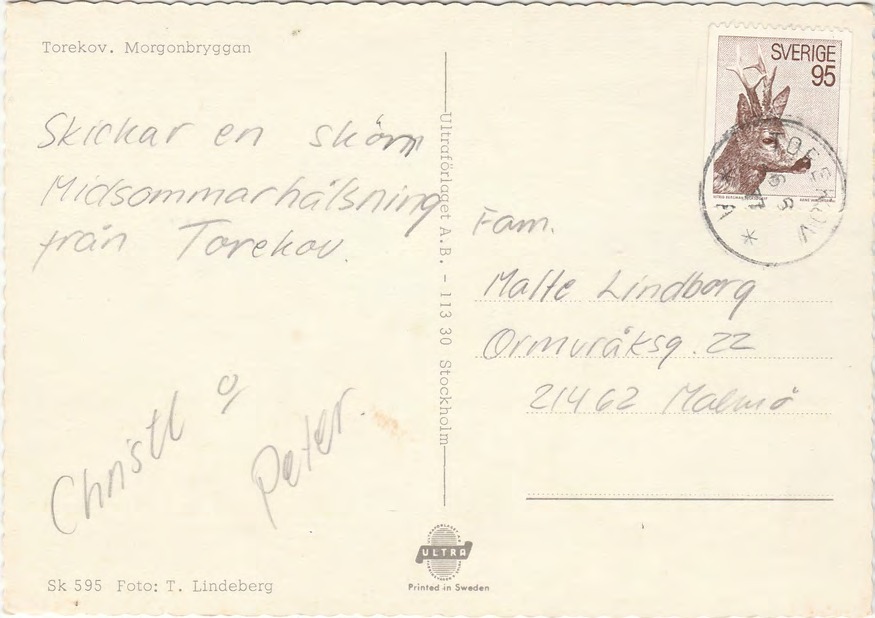 Torekov. Morgonbryggan
Skickar en skön
Midsommarhälsning
från Torekov.
Christl o
Peter.
Sk 595 Foto: T. Lindeberg
Ultraförlaget A.B. - 113 30 Stockholm
ULTRA
Printed in Sweden
SVERIGE
95
TOREKOV
Fam.
Malte Lindborg
Ormvråksg. 22
21462 Malmö